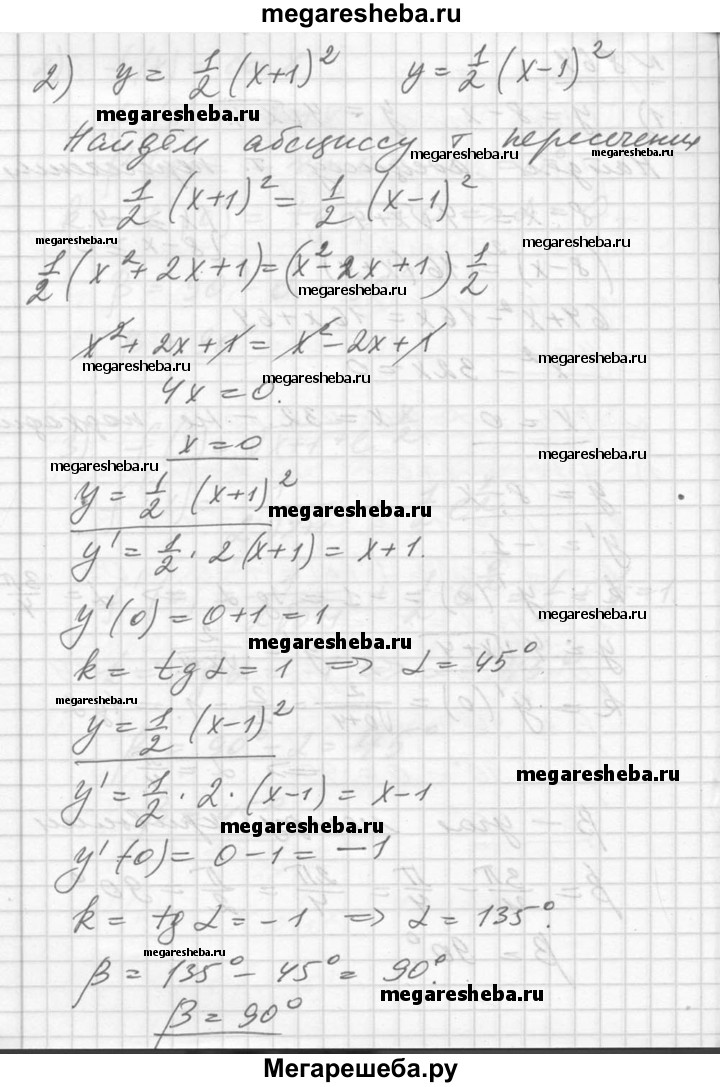 megaresheba.ru
2) y = 1/2 (x+1)² y = 1/2 (x-1)²
megaresheba.ru
Найдём абсциссу т пересечения
megaresheba.ru megaresheba.ru
1/2 (x+1)² = 1/2 (x-1)²
megaresheba.ru megaresheba.ru
1/2 (x²+2x+1) = (x²-2x+1) 1/2
megaresheba.ru
x²+2x+1 = x²-2x+1
megaresheba.ru megaresheba.ru megaresheba.ru
4x = 0.
x = 0
megaresheba.ru megaresheba.ru
y = 1/2 (x+1)²
megaresheba.ru
y' = 1/2 · 2(x+1) = x+1.
y'(0) = 0+1 = 1
megaresheba.ru megaresheba.ru
k = tg α = 1 => α = 45°
megaresheba.ru
y = 1/2 (x-1)²
megaresheba.ru
y' = 1/2 · 2 · (x-1) = x-1
megaresheba.ru
y'(0) = 0-1 = -1
k = tg α = -1 => α = 135°.
megaresheba.ru
β = 135° - 45° = 90°.
megaresheba.ru
β = 90°
Мегарешеба.ру